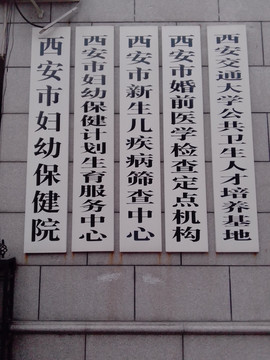 西安市妇幼保健院
西安市妇幼保健计划生育服务中心
西安市新生儿疾病筛查中心
西安市婚前医学检查定点机构
西安交通大学公共卫生人才培养基地